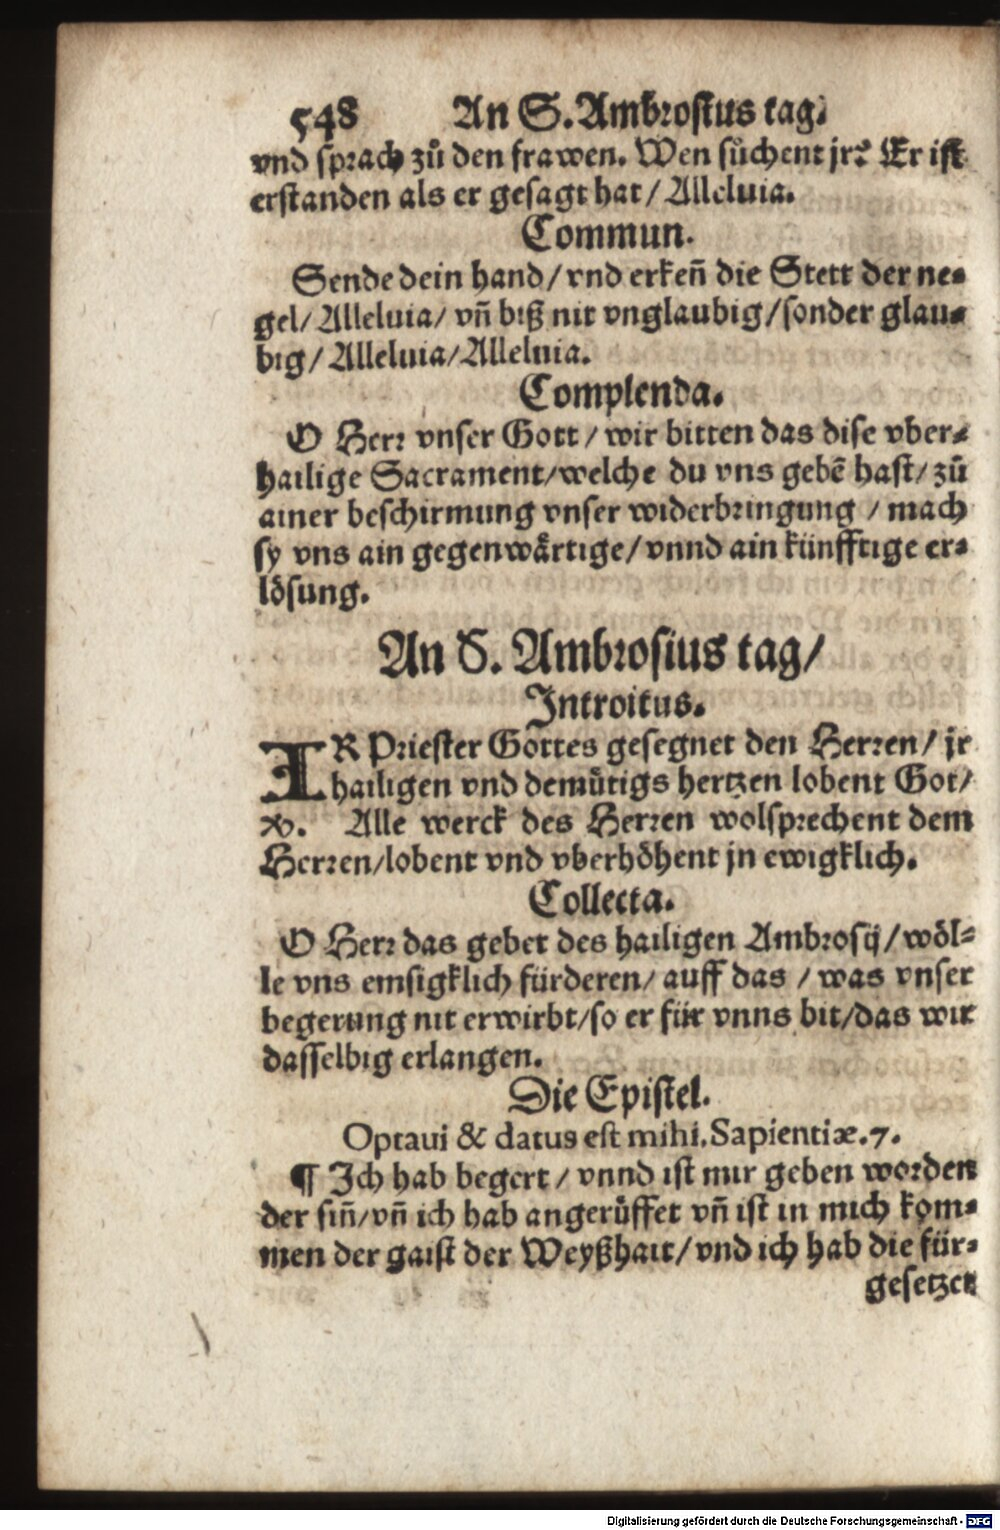 548 An S. Ambrosius tag.
vnd sprach zů den frawen. Wen sůchent jr? Er ist
erstanden als er gesagt hat / Alleluia.
Commun.
Sende dein hand / vnd erkeñ die Stett der ne-
gel / Alleluia / vñ biß nit vnglaubig / sonder glau-
big / Alleluia / Alleluia.
Complenda.
O Herr vnser Gott / wir bitten das dise vber-
hailige Sacrament / welche du vns gebē hast / zů
ainer beschirmung vnser widerbringung / mach
sy vns ain gegenwårtige / vnnd ain künfftige er-
lösung.
An S. Ambrosius tag /
Introitus.
IR Priester Gottes gesegnet den Herren / jr
hailigen vnd demůtigs hertzen lobent Got /
V. Alle werck des Herren wolsprechent dem
Herren / lobent vnd vberhöhent jn ewigklich.
Collecta.
O Herr das gebet des hailigen Ambrosij / wöl-
le vns emsigklich fürderen / auff das / was vnser
begerung nit erwirbt / so er für vnns bit / das wir
dasselbig erlangen.
Die Epistel.
Optaui & datus est mihi. Sapientiæ. 7.
¶ Ich hab begert / vnnd ist mir geben worden
der siñ / vñ ich hab angerůffet vñ ist in mich kom-
men der gaist der Weyßhait / vnd ich hab die für-
gesetzen
Digitalisierung gefördert durch die Deutsche Forschungsgemeinschaft - DFG